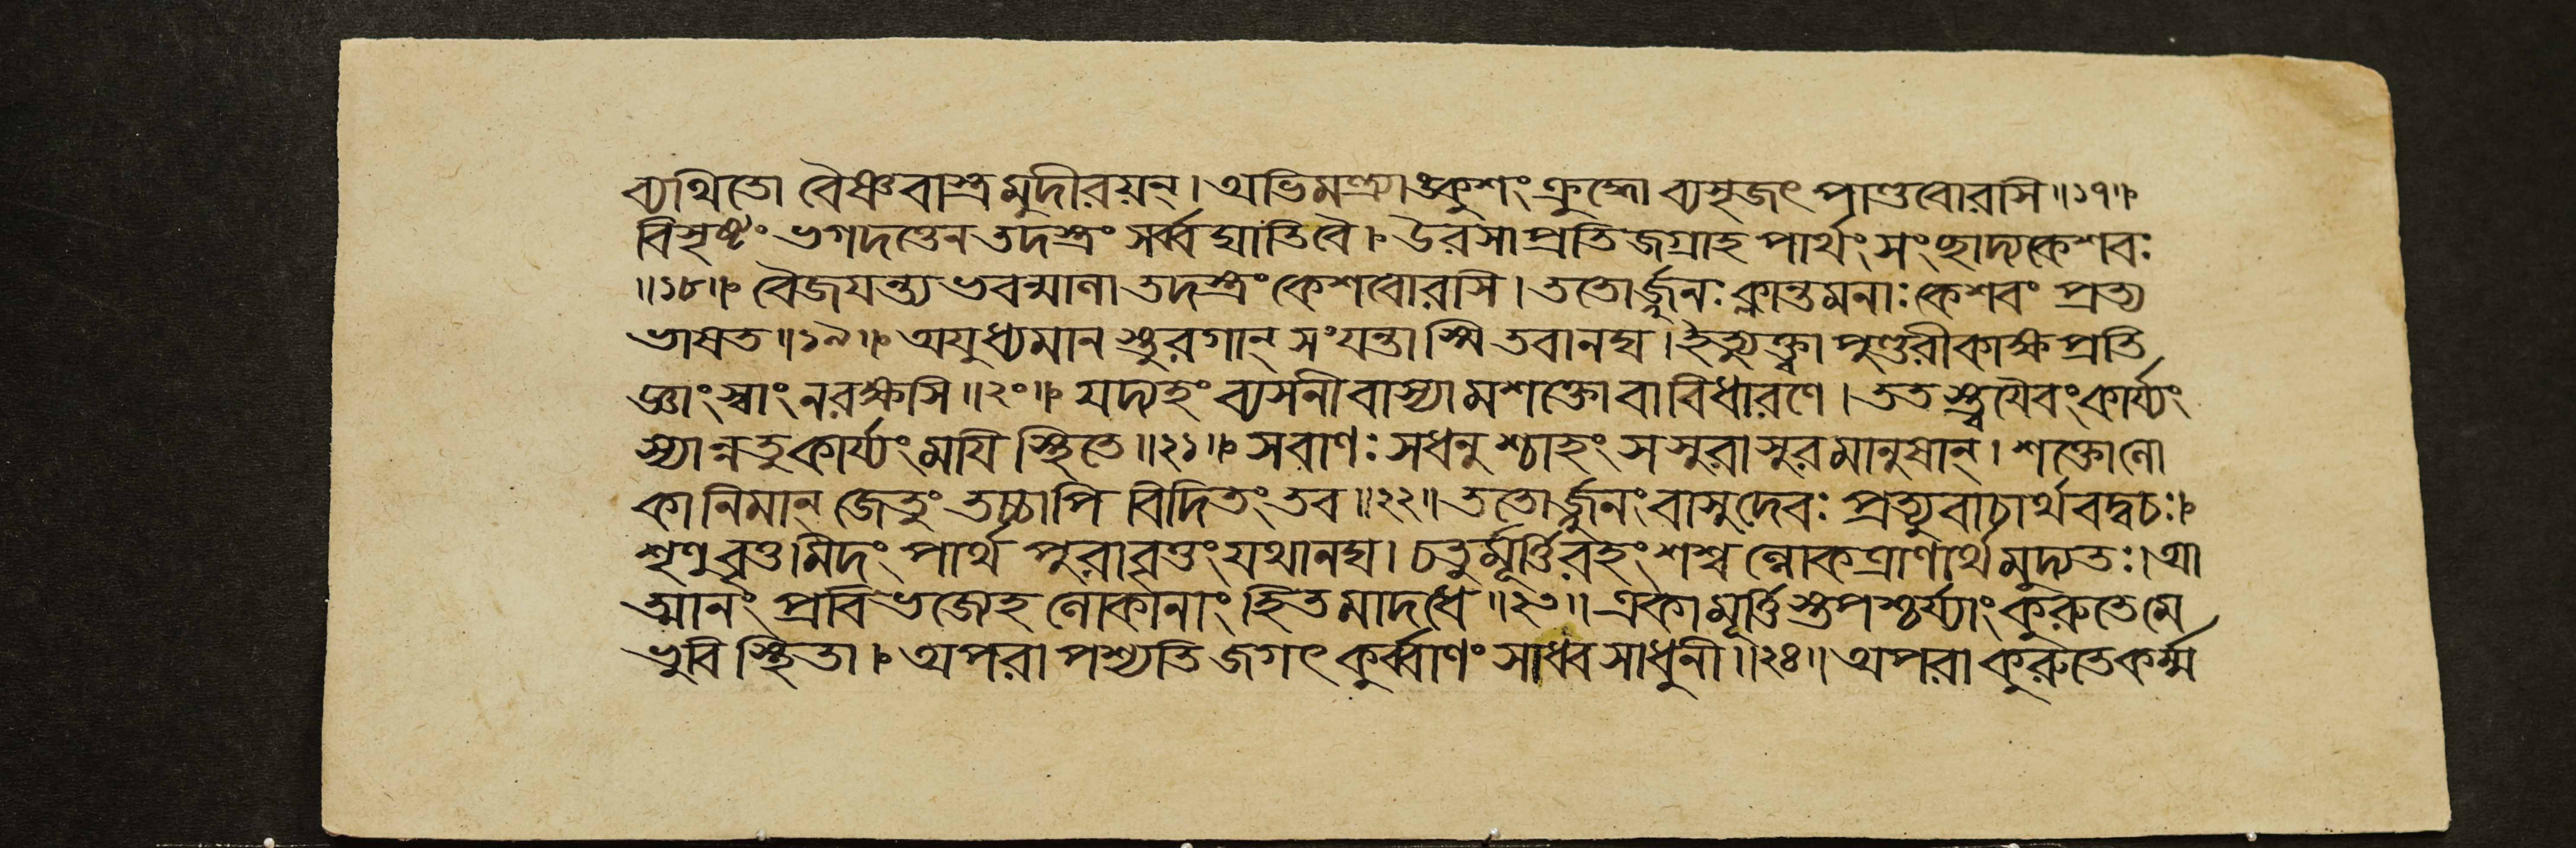 ব্যথিতো বৈষ্ণবাস্ত্রমুদীরয়ন্। অভিমন্ত্র্যাঙ্কুশং ক্রুদ্ধো ব্যসৃজৎ পাণ্ডবোরসি॥১৭॥
বিসৃষ্টং ভগদত্তেন তদস্ত্রং সর্ব্বঘাতি বৈ। উরসা প্রতিজগ্রাহ পার্থং সংছাদ্য কেশবঃ
॥১৮॥ বৈজয়ন্ত্যভবন্মালা তদস্ত্রং কেশবোরসি। ততোর্জ্জুনঃ ক্লান্তমনাঃ কেশবং প্রত্য
ভাষত॥১৯॥ অযুধ্যমানস্তুরগান্ সংযন্তাস্মি তবানঘ। ইত্যুক্ত্বা পুণ্ডরীকাক্ষ প্রতি
জ্ঞাং স্বাং ন রক্ষসি॥২০॥ যদ্যহং ব্যসনী বা স্যামশক্তো বা বিধারণে। ততস্ত্বয়ৈবং কার্য্যং
স্যান্ন তু কার্য্যং ময়ি স্থিতে॥২১॥ সবাণঃ সধনুশ্চাহং সসুরাসুরমানুষান্। শক্তো লো
কানিমান্ জেতুং তচ্চাপি বিদিতং তব॥২২॥ ততোর্জ্জুনং বাসুদেবঃ প্রত্যুবাচার্থবদ্বচঃ।
শৃণু বৃত্তমিদং পার্থ পুরাবৃত্তং যথানঘ। চতুর্মূর্ত্তিরহং শশ্বল্লোকত্রাণার্থমুদ্যতঃ। আ
ত্মানং প্রবিভজেহ লোকানাং হিতমাদধে॥২৩॥ একা মূর্ত্তিস্তপশ্চর্য্যাং কুরুতে মে
ভুবি স্থিতা। অপরা পশ্যতি জগৎ কুর্ব্বাণং সাধ্বসাধুনী॥২৪॥ অপরা কুরুতে কর্ম্ম